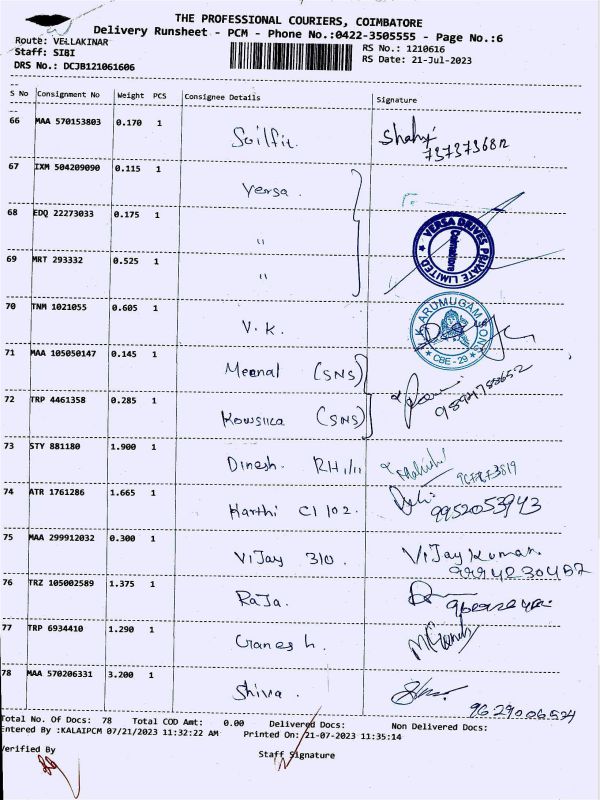 THE PROFESSIONAL COURIERS, COIMBATORE
Delivery Runsheet - PCM - Phone No.:0422-3505555 - Page No.:6
Route: VELLAKINAR
RS No.: 1210616
Staff: SIBI
RS Date: 21-Jul-2023
DRS No.: DCJB121061606
S No Consignment No Weight PCS Consignee Details Signature
66 MAA 570153803 0.170 1 Soilfit.
67 IXM 504209090 0.115 1 Versa.
68 EDQ 22273033 0.175 1 "
VERSA DRIVES PRIVATE LIMITED
Coimbatore
69 MRT 293332 0.525 1 "
70 TNM 1021055 0.605 1 V.K.
K. ARUMUGAM SONS
CBE - 29
71 MAA 105050147 0.145 1 Meenal (SNS)
72 TRP 4461358 0.285 1 Kowsika (SNS)
73 STY 881180 1.900 1 Dinesh.
74 ATR 1761286 1.665 1 Harthi C1 102. 9952053943
75 MAA 299912032 0.300 1 Vijay 310. Vijaykumar
76 TRZ 105002589 1.375 1 Raja.
77 TRP 6934410 1.290 1 Ganesh.
78 MAA 570206331 3.200 1 Shiva.
9629006524
Total No. Of Docs: 78 Total COD Amt: 0.00 Delivered Docs: Non Delivered Docs:
Entered By :KALAIPCM 07/21/2023 11:32:22 AM Printed On: 21-07-2023 11:35:14
Verified By Staff Signature